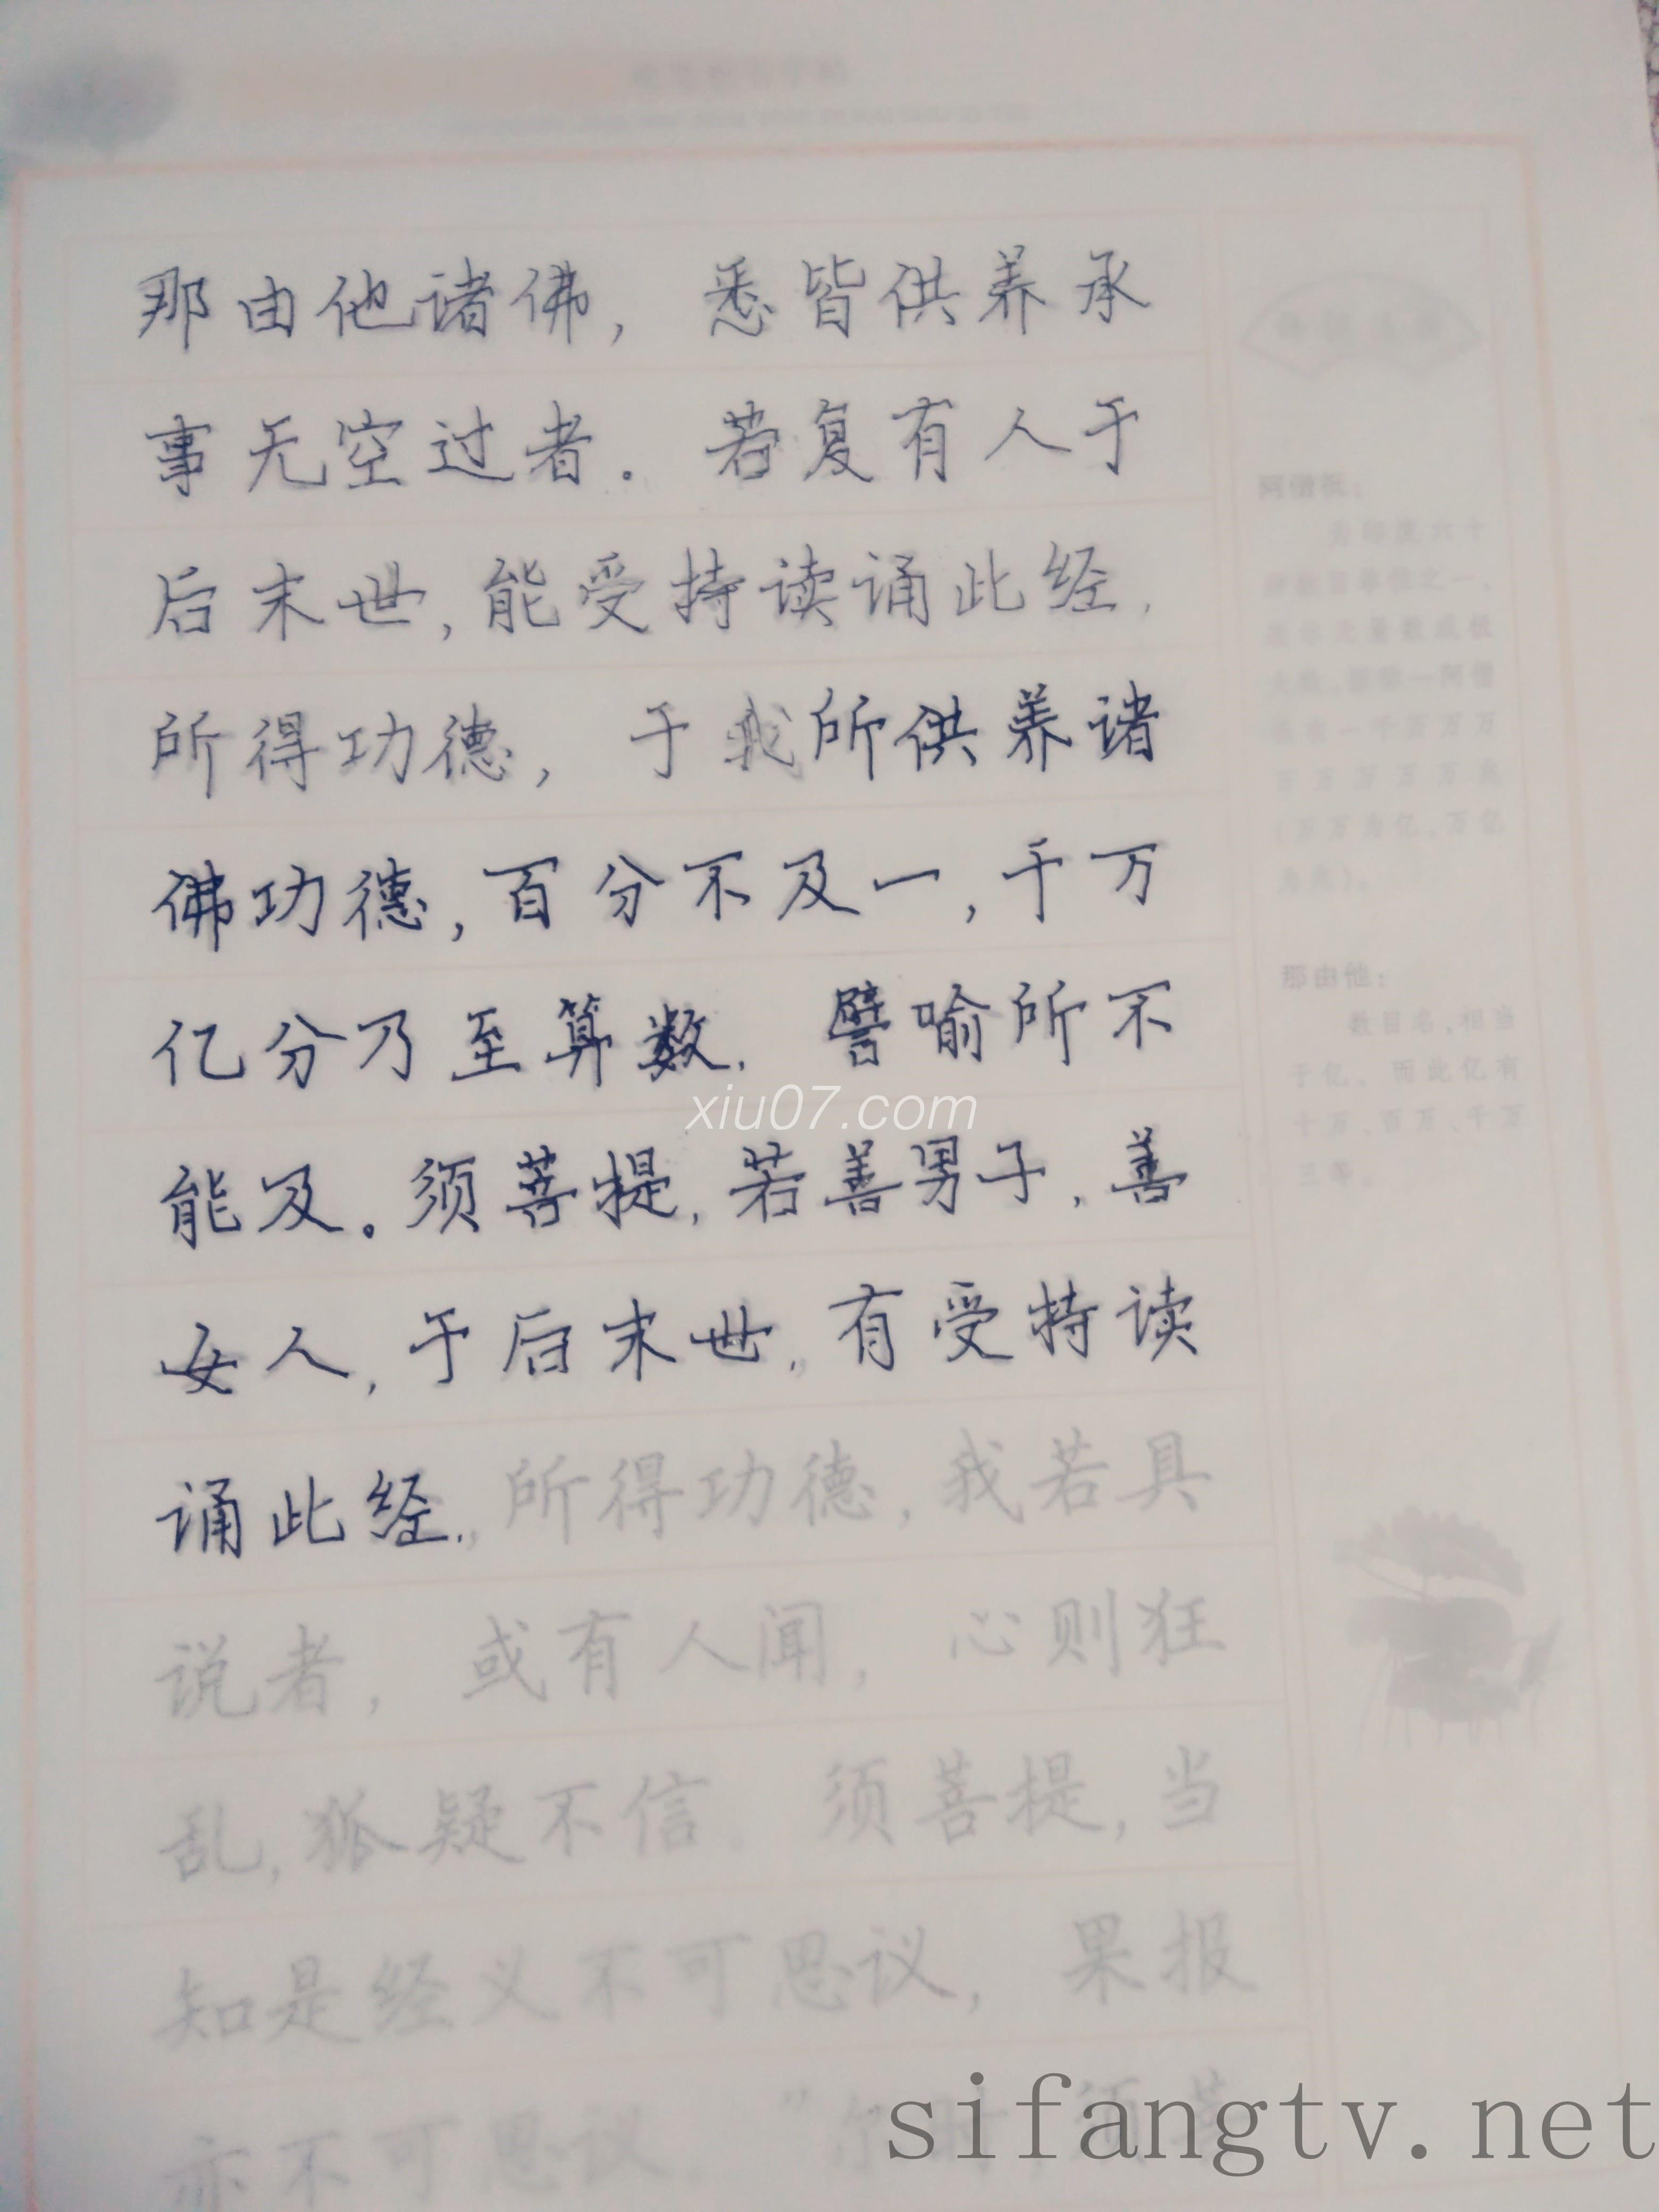 那由他诸佛，悉皆供养承
事无空过者。若复有人于
后末世，能受持读诵此经，
所得功德，于我所供养诸
佛功德，百分不及一，千万
亿分乃至算数，譬喻所不
能及。须菩提，若善男子，善
女人，于后末世，有受持读
诵此经，所得功德，我若具
说者，或有人闻，心则狂
乱，狐疑不信。须菩提，当
知是经义不可思议，果报
亦不可思议。”尔时，须菩
阿僧祇：
为印度六十
种数目单位之一，
一千百万万
万万万万万兆
（万万为亿，万亿
为兆）。
那由他：
数目名，相当
于亿。而此亿有
十万、百万、千万
三等。
xiu07.com
sifangtv.net